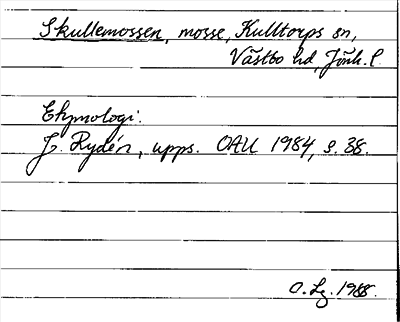 Skullemossen, mosse, Kulltorps sn,
Västbo hd, Jönk. l.
Etymologi:
J. Rydén, upps. OAU 1984, s. 38.
O. Lg. 1988.